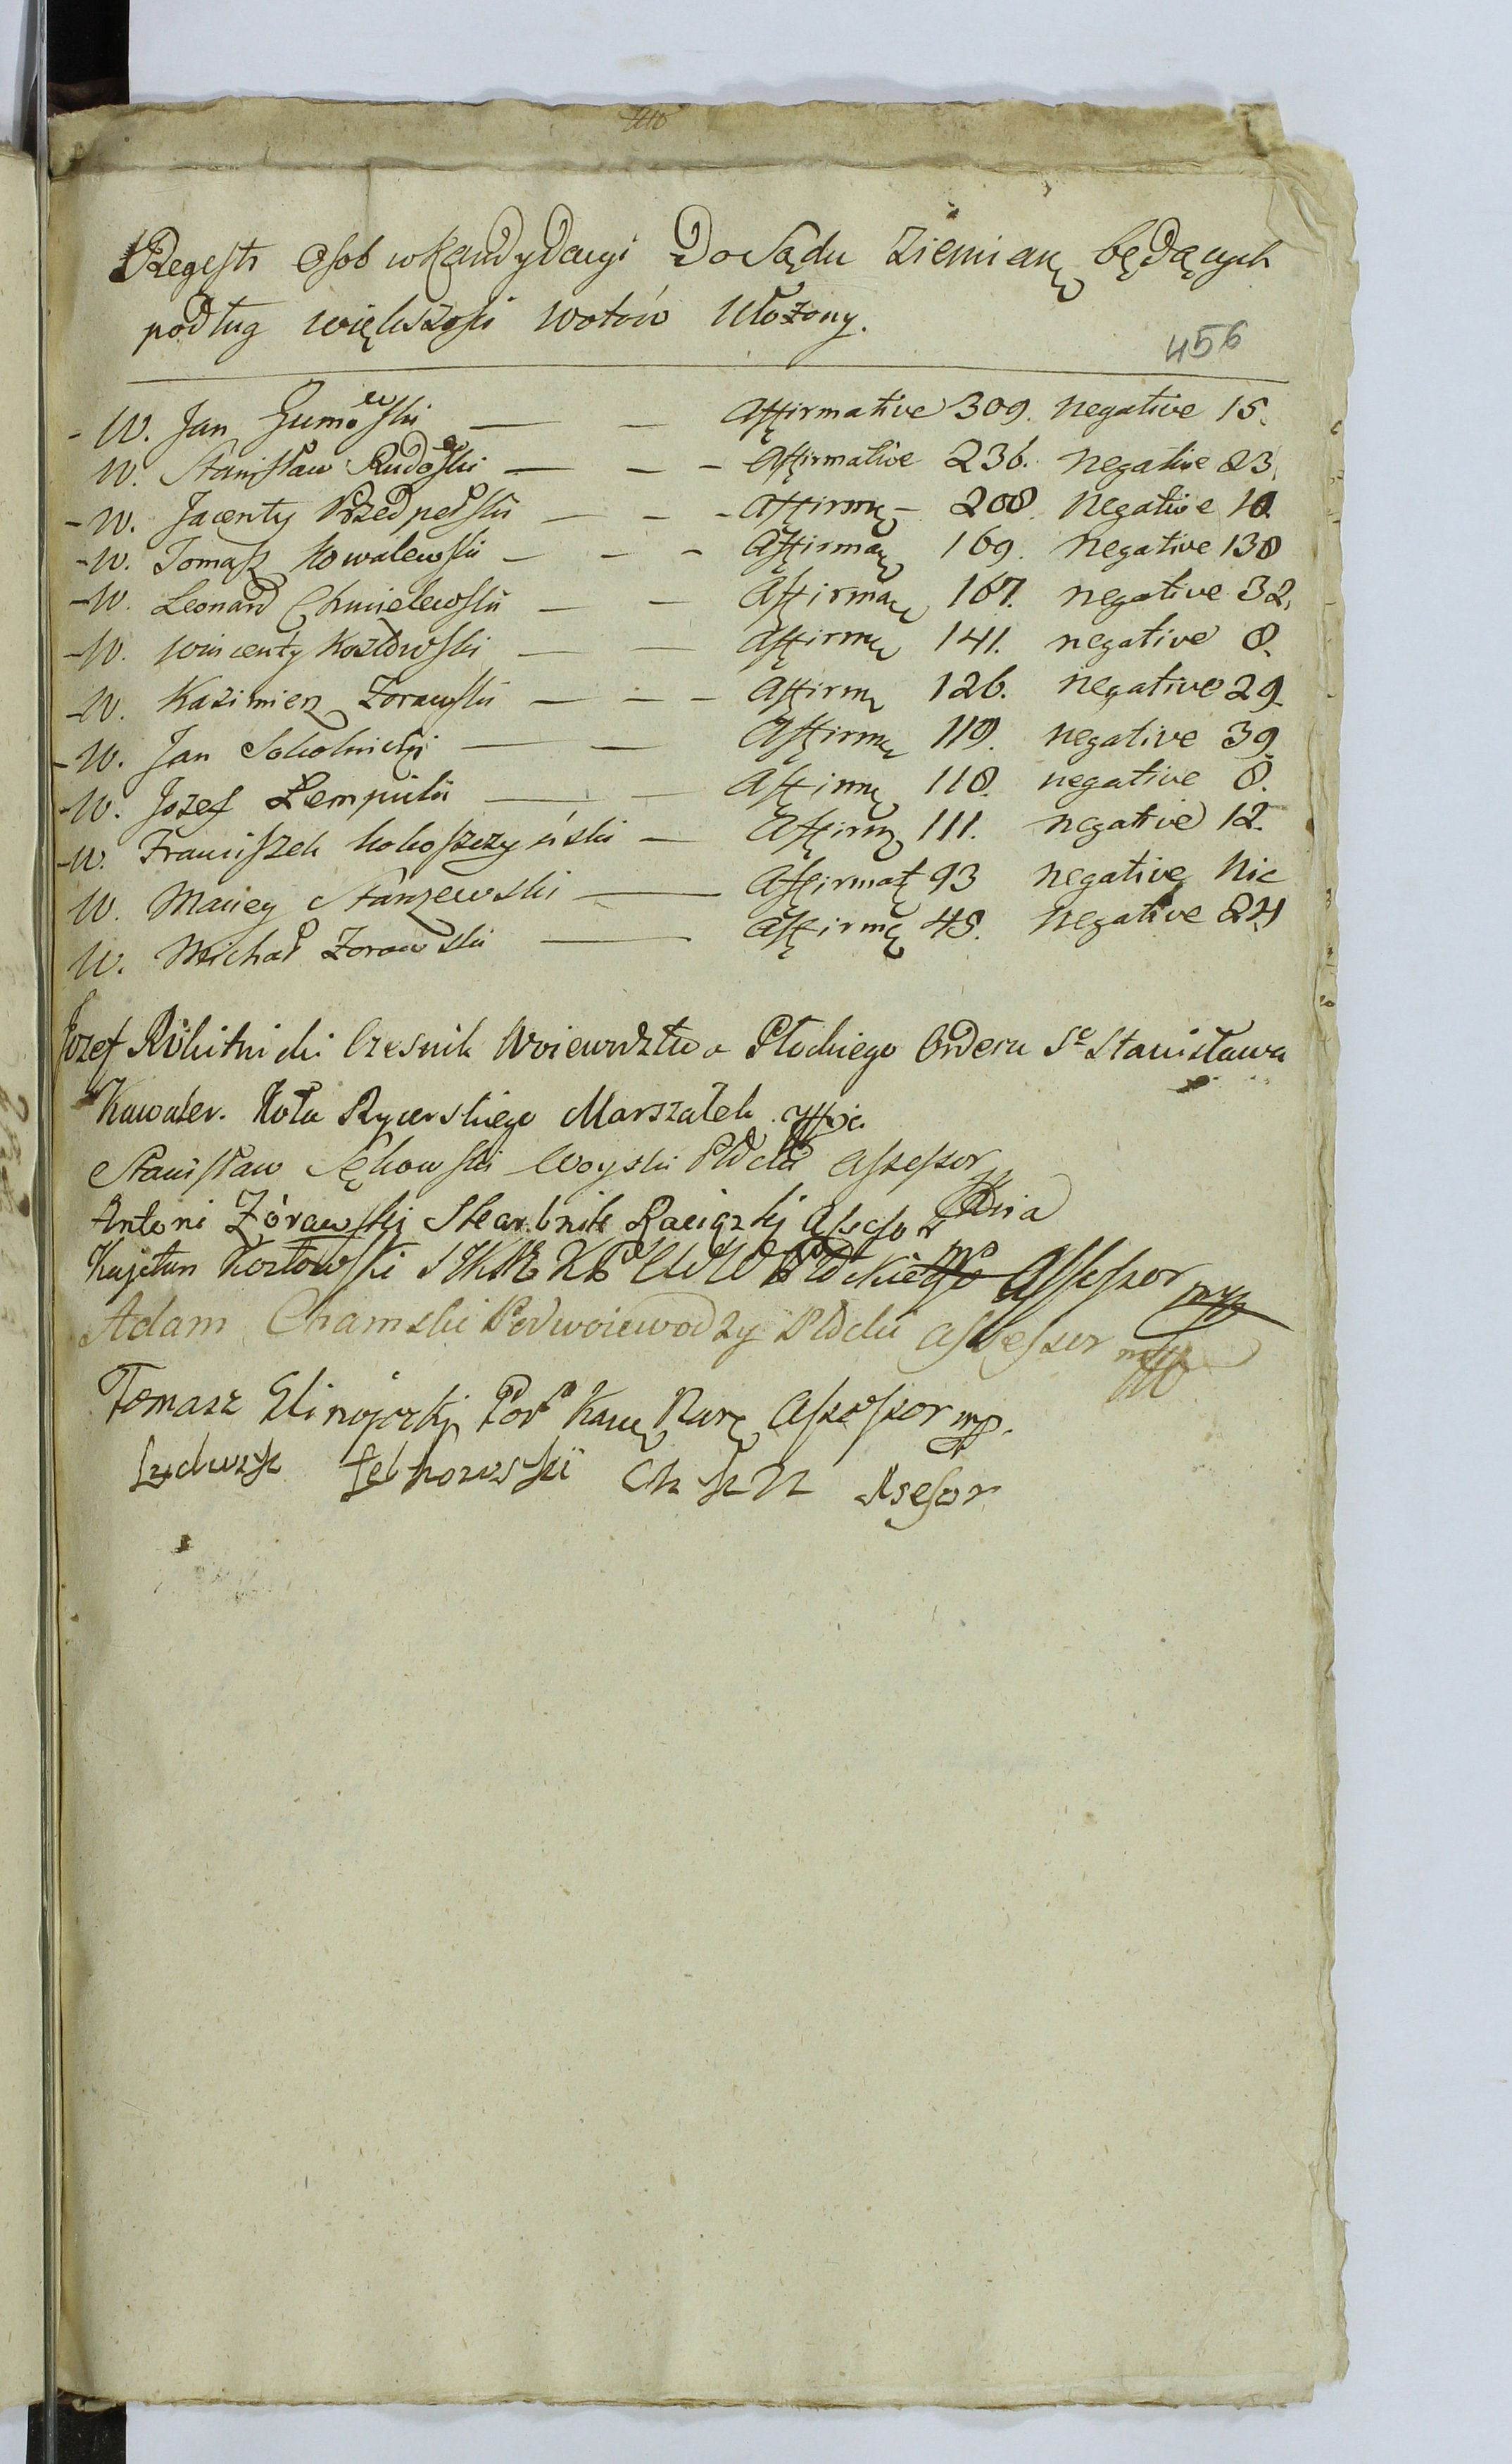 Regestr Osob w Kandydacyi Do Sądu Ziemianͅ będących
podług większości wotów Ułożony.
456
- W. Jan Gumowski — — Affirmative 309. negative 15.
W. Stanisław Rudowski — — - Affirmative 236. negative 23.
- W. Jacenty Przedpełski — — - Affirm - 208. Negative 10.
- W. Tomasz Kowalewski — — - Affirma 169. Negative 138
- W. Leonard Chmielewski — — Affirma 167. negative 32.
- W. Wincenty Kozłowski — — Affirm 141. negative 8.
- W. Kazimierz Zorawski — — - Affirm 126. negative 29.
- W. Jan Sokolnicki — — Affirm 119. negative 39.
- W. Jozef Lempicki — — Affirm 118. negative 8.
- W. Franciszek Kokoszczyński — Affirm 111. negative 12.
W. Maciey Starzewski — Affirmat 93 negative Nic
W. Michał Zorawski — Affirm 48. Negative 24
Jozef Rokitnicki Czesnik Woiewodztwa Płockiego Orderu Sgo Stanisława
Kawaler. Koła Rycerskiego Marszałek
Stanisław Sękowski Woyski Płcki Assessor
Antoni Zórawski Skarbnik Raciązki Asesor
Kajetan Kozłowski Płckie Assessor mp
Adam Chamski Podwoiewodzy Płcki Assessor mp
Tomasz Assessor mp.
Asesor